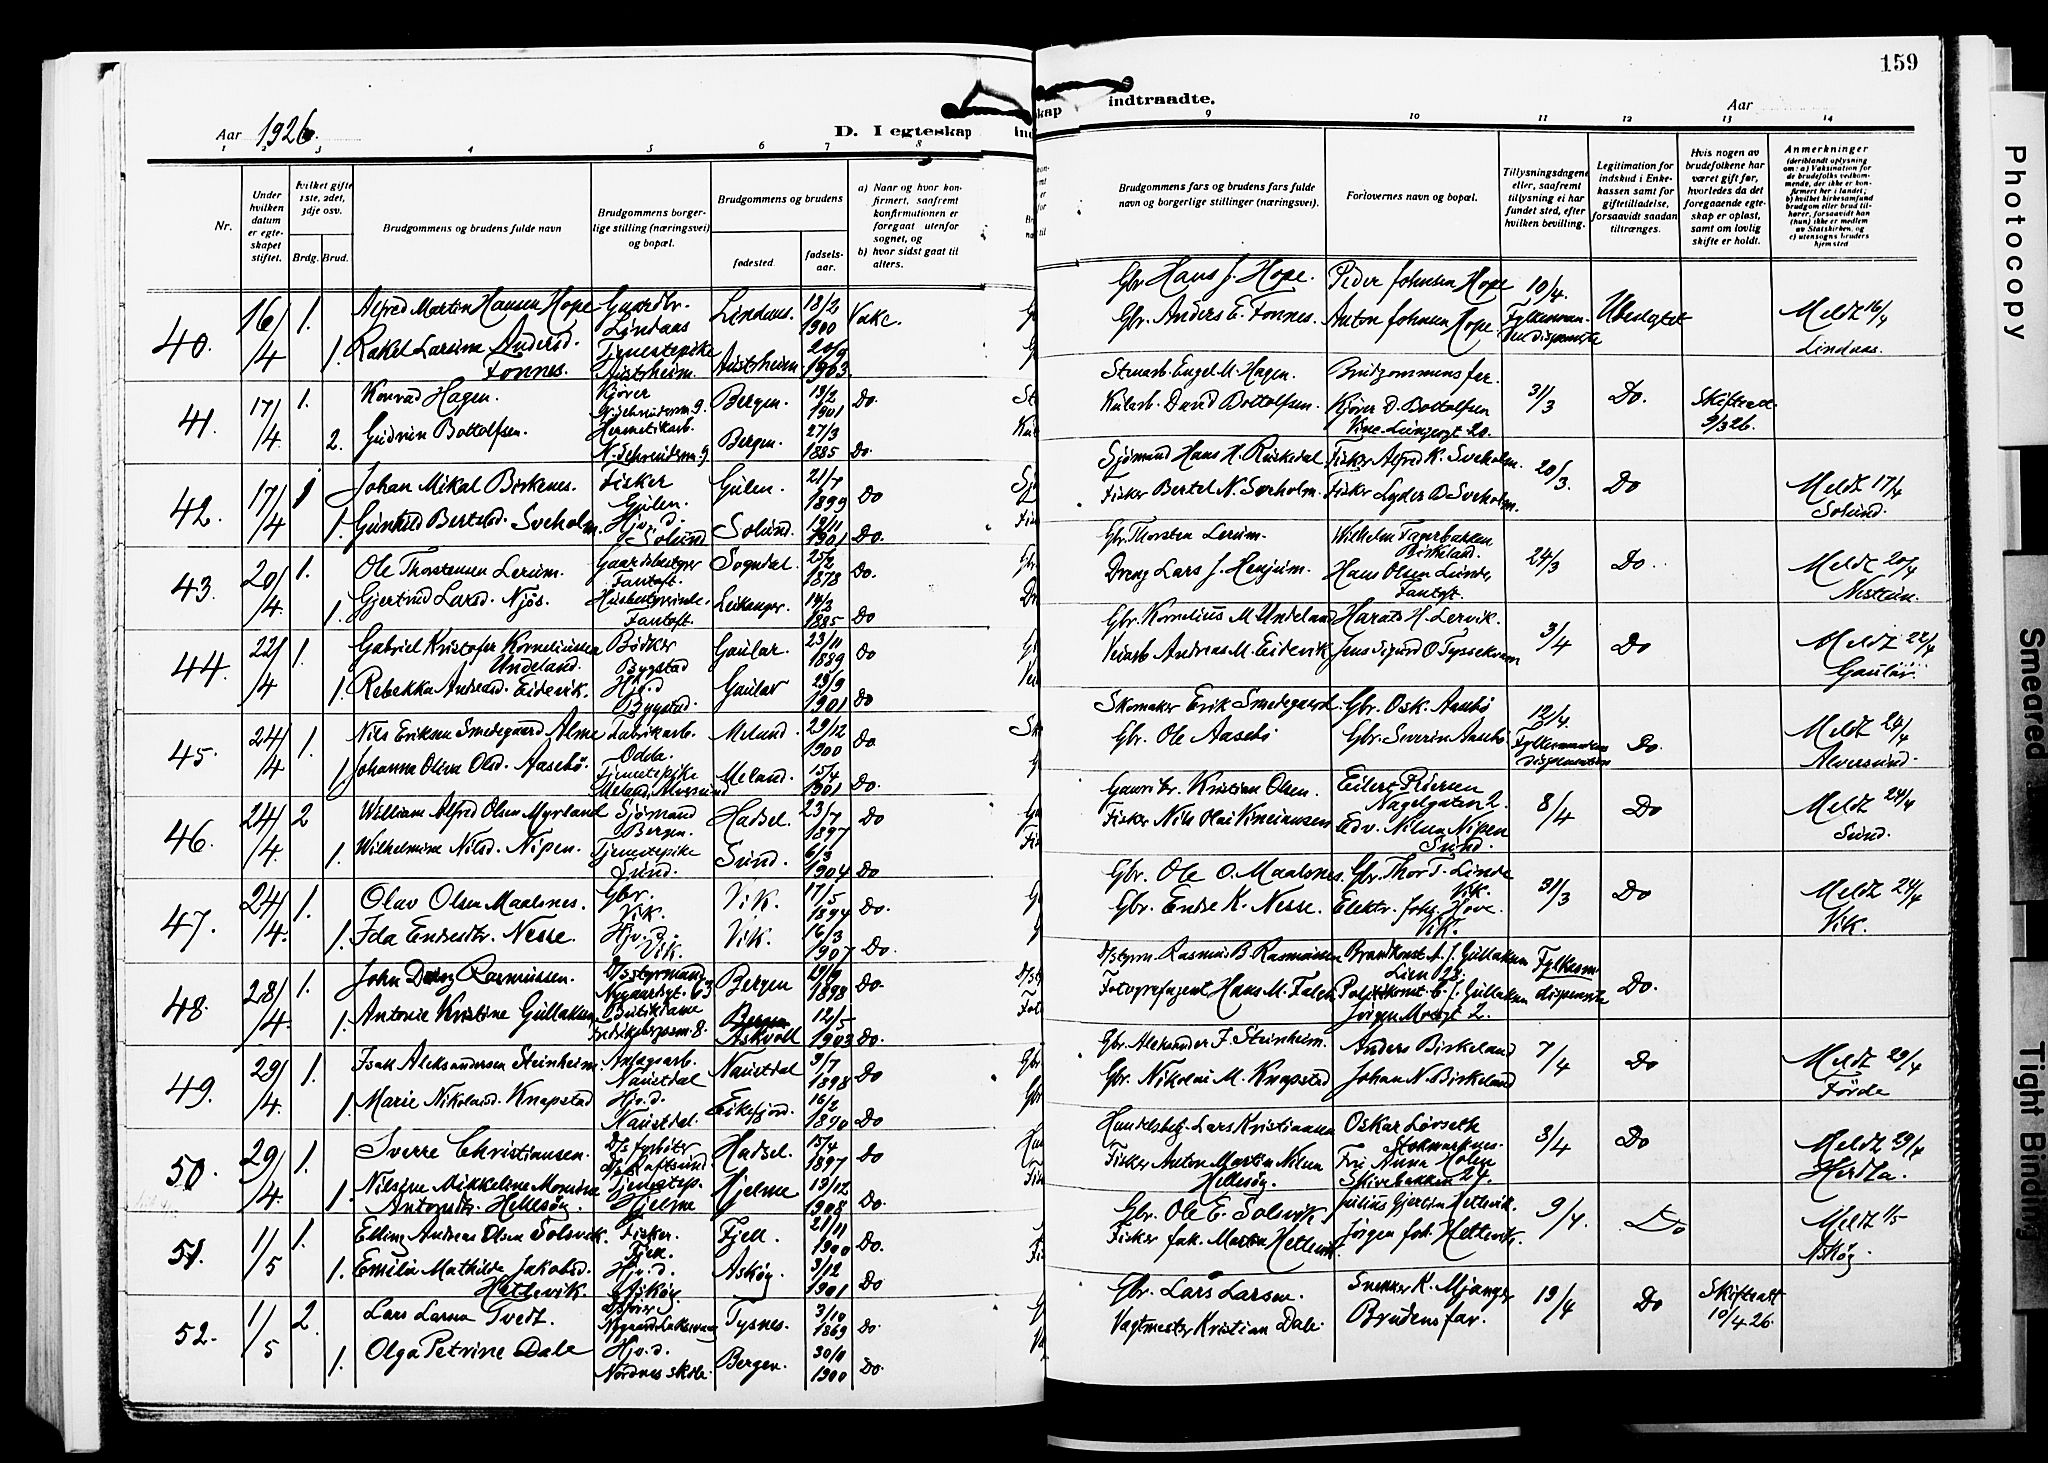 159
Aar 1926.
D. I egteskap
indtraadte.
Aar
1 2 3 4 5 6 7 8
9 10 11 12 13 14
Nr.
Under hvilken datum er egteskapet stiftet.
hvilket gifte 1ste, 2det, 3dje osv.
Brdg. Brud.
Brudgommens og brudens fulde navn
Brudgommens borgerlige stilling (næringsvei) og bopæl.
Brudgommens og brudens
fødested.
fødselsaar.
a) Naar og hvor konfirmert, saafremt konfirmationen er foregaat utenfor sognet, og
b) hvor sidst gaat til alters.
Brudgommens fars og brudens fars fulde navn og borgerlige stillinger (næringsvei).
Forlovernes navn og bopæl.
Tillysningsdagene eller, saafremt tillysning ei har fundet sted, efter hvilken bevilling.
Legitimation for indskud i Enkekassen samt for giftetilladelse, forsaavidt saadan tiltrænges.
Hvis nogen av brudefolkene har været gift før, hvorledes da det foregaaende egteskap er opløst, samt om lovlig skifte er holdt.
Anmerkninger
(deriblandt oplysning om: a) Vaksination for de brudefolks vedkommende, der ikke er konfirmert her i landet; b) hvilket kirkesamfund brudgom eller brud tilhører, forsaavidt han (hun) ikke er medlem av Statskirken, og c) utensogns bruders hjemsted
40. 16/4 1. Alfred Martin Hansen Hope Gaardbr. Lindaas Lindaas. 18/2 1900
Gbr. Hans J. Hope. Peder Johnsen Hope 10/4. Ubeslegtet Meldt 16/4 Lindaas.
1. Rakel Larsine Andersd. Fonnes. Tjenestepike Austrheim. Austrheim 20/9 1903.
Gbr. Anders E. Fonnes. Anton Johnsen Hope.
41. 17/4 1. Konrad Hagen. Kjører Bergen. 18/2 1901 Do.
Engel M. Hagen. Brudgommens far. 31/3 Do. Skifteatt. 9/3 26.
2. Gudrun Bottolfsen. Hermetikarb. Bergen. 27/3 1885 Do.
David Bottolfsen. Kjører D. Bottolfsen
42. 17/4 1 Johan Mikal Birkenes. Fisker Gulen. Gulen. 21/7 1899 Do
Sjömand Hans H. Fisker Alfred K. Sveholm. 20/3. Do Meldt 17/4 Solund.
1. Gunhild Bertelsd. Sveholm. Hjv. d. Solund Solund. 1901 Do.
Fisker Bertel N. Sveholm. Fisker Lyder D. Sveholm.
43. 20/4. 1. Ole Thorstensen Lerum. Gaardbestyrer Fantoft. Sogndal. 25/2 1878 Do.
Gbr. Thorsten Lerum. Wilhelm Fagerbakken Birkeland. 24/3 Do. Meldt 20/4 Nesttun.
1. Gjertrud Larsd. Njøs. Husbestyrerinde. Fantoft Leikanger. 14/3 1885 Do
Dreng Lars J. Henjum. Hans Olsen Lunde, Fantoft.
44. 22/4 1. Gabriel Kristofer Korneliussen Undeland. Bødker Bygstad Gaular. 23/11 1889 Do
Gbr. Kornelius M. Undeland Harald H. Lervik. 3/4 Do Meldt 22/4 Gaular.
1. Rebekka Andreasd. Eidevik. Hjv. d Bygstad. Gaular 29/9 1901 Do
Veiarb. Andreas M. Eidevik Jens Sigurd O. Tyssekvam
45. 24/4 1. Nils Eriksen Smedegaard Alme Fabrikarb. Odda. Meland. 29/12 1900 Do
Skomaker Erik Smedegaard. Gbr. Osk. Aasebö 12/4. Fylkesmandens dispensation Do. Meldt 24/4 Alversund.
1. Johanna Olava Olsd. Aasebö. Tjenestepike Meland, Alversund Meland. 15/4 1901 Do.
Gbr. Ole Aasebö Gbr. Severin Aasebö
46. 24/4. 2 William Alfred Olsen Myrland Sjömand Bergen. Hadsel. 23/7 1897 Do
Gaardbr. Kristian Olsen. Eilert Pedersen Nagelgaten 2. 8/4 Do Meldt 24/4 Sund.
1. Wilhelmine Nilsd. Nipen. Tjenestepike Sund. Sund. 6/3 1904 Do
Fisker Nils Olai Edv. Nilsen Nipen Sund.
47. 24/4. 1. Olav Olsen Maalsnes. Gbr. Vik. Vik. 17/5 1894 Do.
Gbr. Ole O. Maalsnes. Gbr. Thor T. Linde Vik. 31/3 Do Meldt 24/4 Vik.
1. Ida Endresdtr. Nesse. Hjv. d. Vik. Vik. 16/3 1907 Do.
Gbr. Endre K. Nesse. Elektr. Joh. Hove. Vik.
48. 28/4. 1. John Rasmussen. D/sstyrmand Nygaardsgt. 63 Bergen 29/9 1898 Do.
D/styrm. Rasmus B. Rasmussen Brandkonst. A. J. Gullaksen Lien 28. Fylkesm dispensats Do.
1. Antonie Kristine Gullaksen Butikdame Askvoll 12/5 1903 Do.
Fotografagent Hans M. Falch Politikonst. C. J. Gullaksen
49. 29/4. 1. Isak Aleksandersen Steinheim. Anlagsarb. Naustdal Naustdal 9/7 1898 Do
Gbr. Aleksander J. Steinheim. Anders Birkeland 7/4 Do Meldt 29/4 Förde
1. Marie Nikolaisd. Knapstad Hjv. d. Naustdal. Eikefjord. 16/2 1890 Do
Gbr. Nikolai M. Knapstad Johan N. Birkeland
50. 29/4. 1. Sverre Christiansen. D/s fyrböter D/s Raftsund Hadsel. 15/4 1897 Do
Handelsbetj. Lars Kristiansen Oskar Lövseth Stokmarknes. 3/4 Do Meldt 29/4 Herdla.
1. Nilsine Mikkeline Monsine Antonsdtr. Hellesöy. Tjenestep. Hjelme Hjelme 13/12 1908 Do.
Fisker Anton Martin Nilsen Hellesöy. Frk. Anna Holm Skivebakken 27.
51. 1/5 1. Elling Andreas Olsen Solsvik. Fisker. Fjell. Fjell. 21/11 1900 Do.
Gbr. Ole E. Solsvik Julius Gjertsen Hetlevik. 9/4. Do Meldt 1/5 Askøy.
1. Emilia Mathilde Jakobsd. Hetlevik. Hjv. d. Askøy Askøy. 3/12 1901 Do
Fisker Jak. Hetlevik Jørgen Joh. Hetlevik.
52. 1/5 2. Lars Larsen Tvedt. Tysnes. 3/10 1869 Do.
Gbr. Lars Larsen. Snekker K. Mjanger 19/4 Do Skifteatt 10/4 26.
1. Olga Petrine Dale Hjv. d. Nordnes skole. Bergen. 1900 Do.
Vagtmester Kristian Dale. Brudens far.
Photocopy
Smeared
Tight Binding